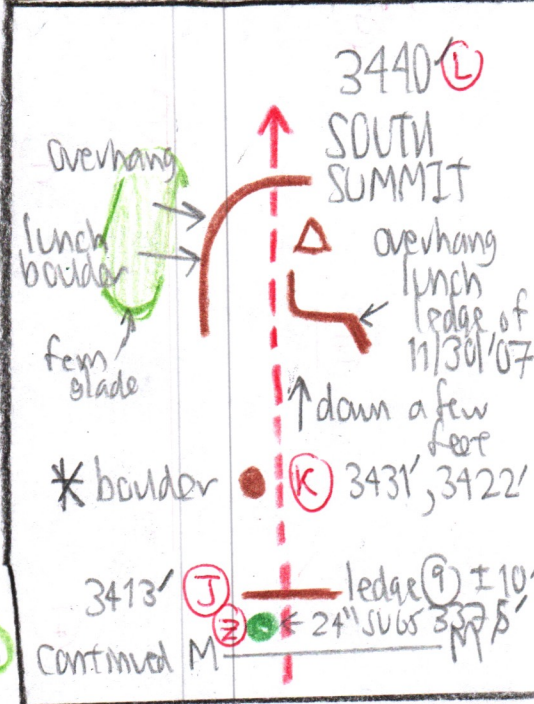 3440' L
SOUTH
SUMMIT
overhang
lunch
boulder
fern
glade
overhang
lunch
ledge of
11/30/'07
↑ down a few
feet
* boulder
K 3431', 3422'
3413' J
ledge 9 ± 10'
Z ← 24" SUGS
continued M M